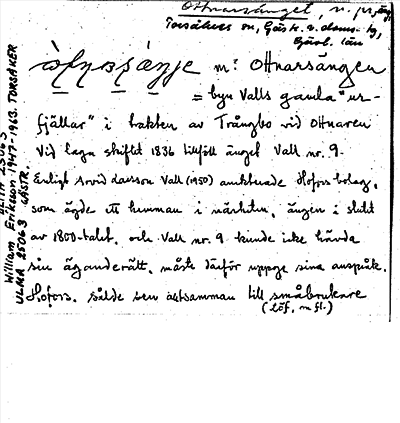 Ottnarsängen, n. pr. äng,
Torsåkers sn, Gästr. ö. doms-g,
Gävl. län
m: Ottnarsängen
= byn Valls gamla "ur-
fjällar" i trakten av Trångbo vid Ottnaren
Vid laga skiftet 1836 tillföll ängel Vall nr. 9.
Enligt Arvid Larsson Vall (1950) annekterade Hofors bolag,
som ägde ett hemman i närheten, ängen i slutet
av 1800-talet, och Vall nr. 9 kunde icke hävda
sin äganderätt, måste därför uppge sina anspråk.
Hofors sålde sen altsamman till småbrukare
(Löf, m fl.)
William Eriksson 1947-1963. TORSÅKER
ULMA 25063 GÄSTR.